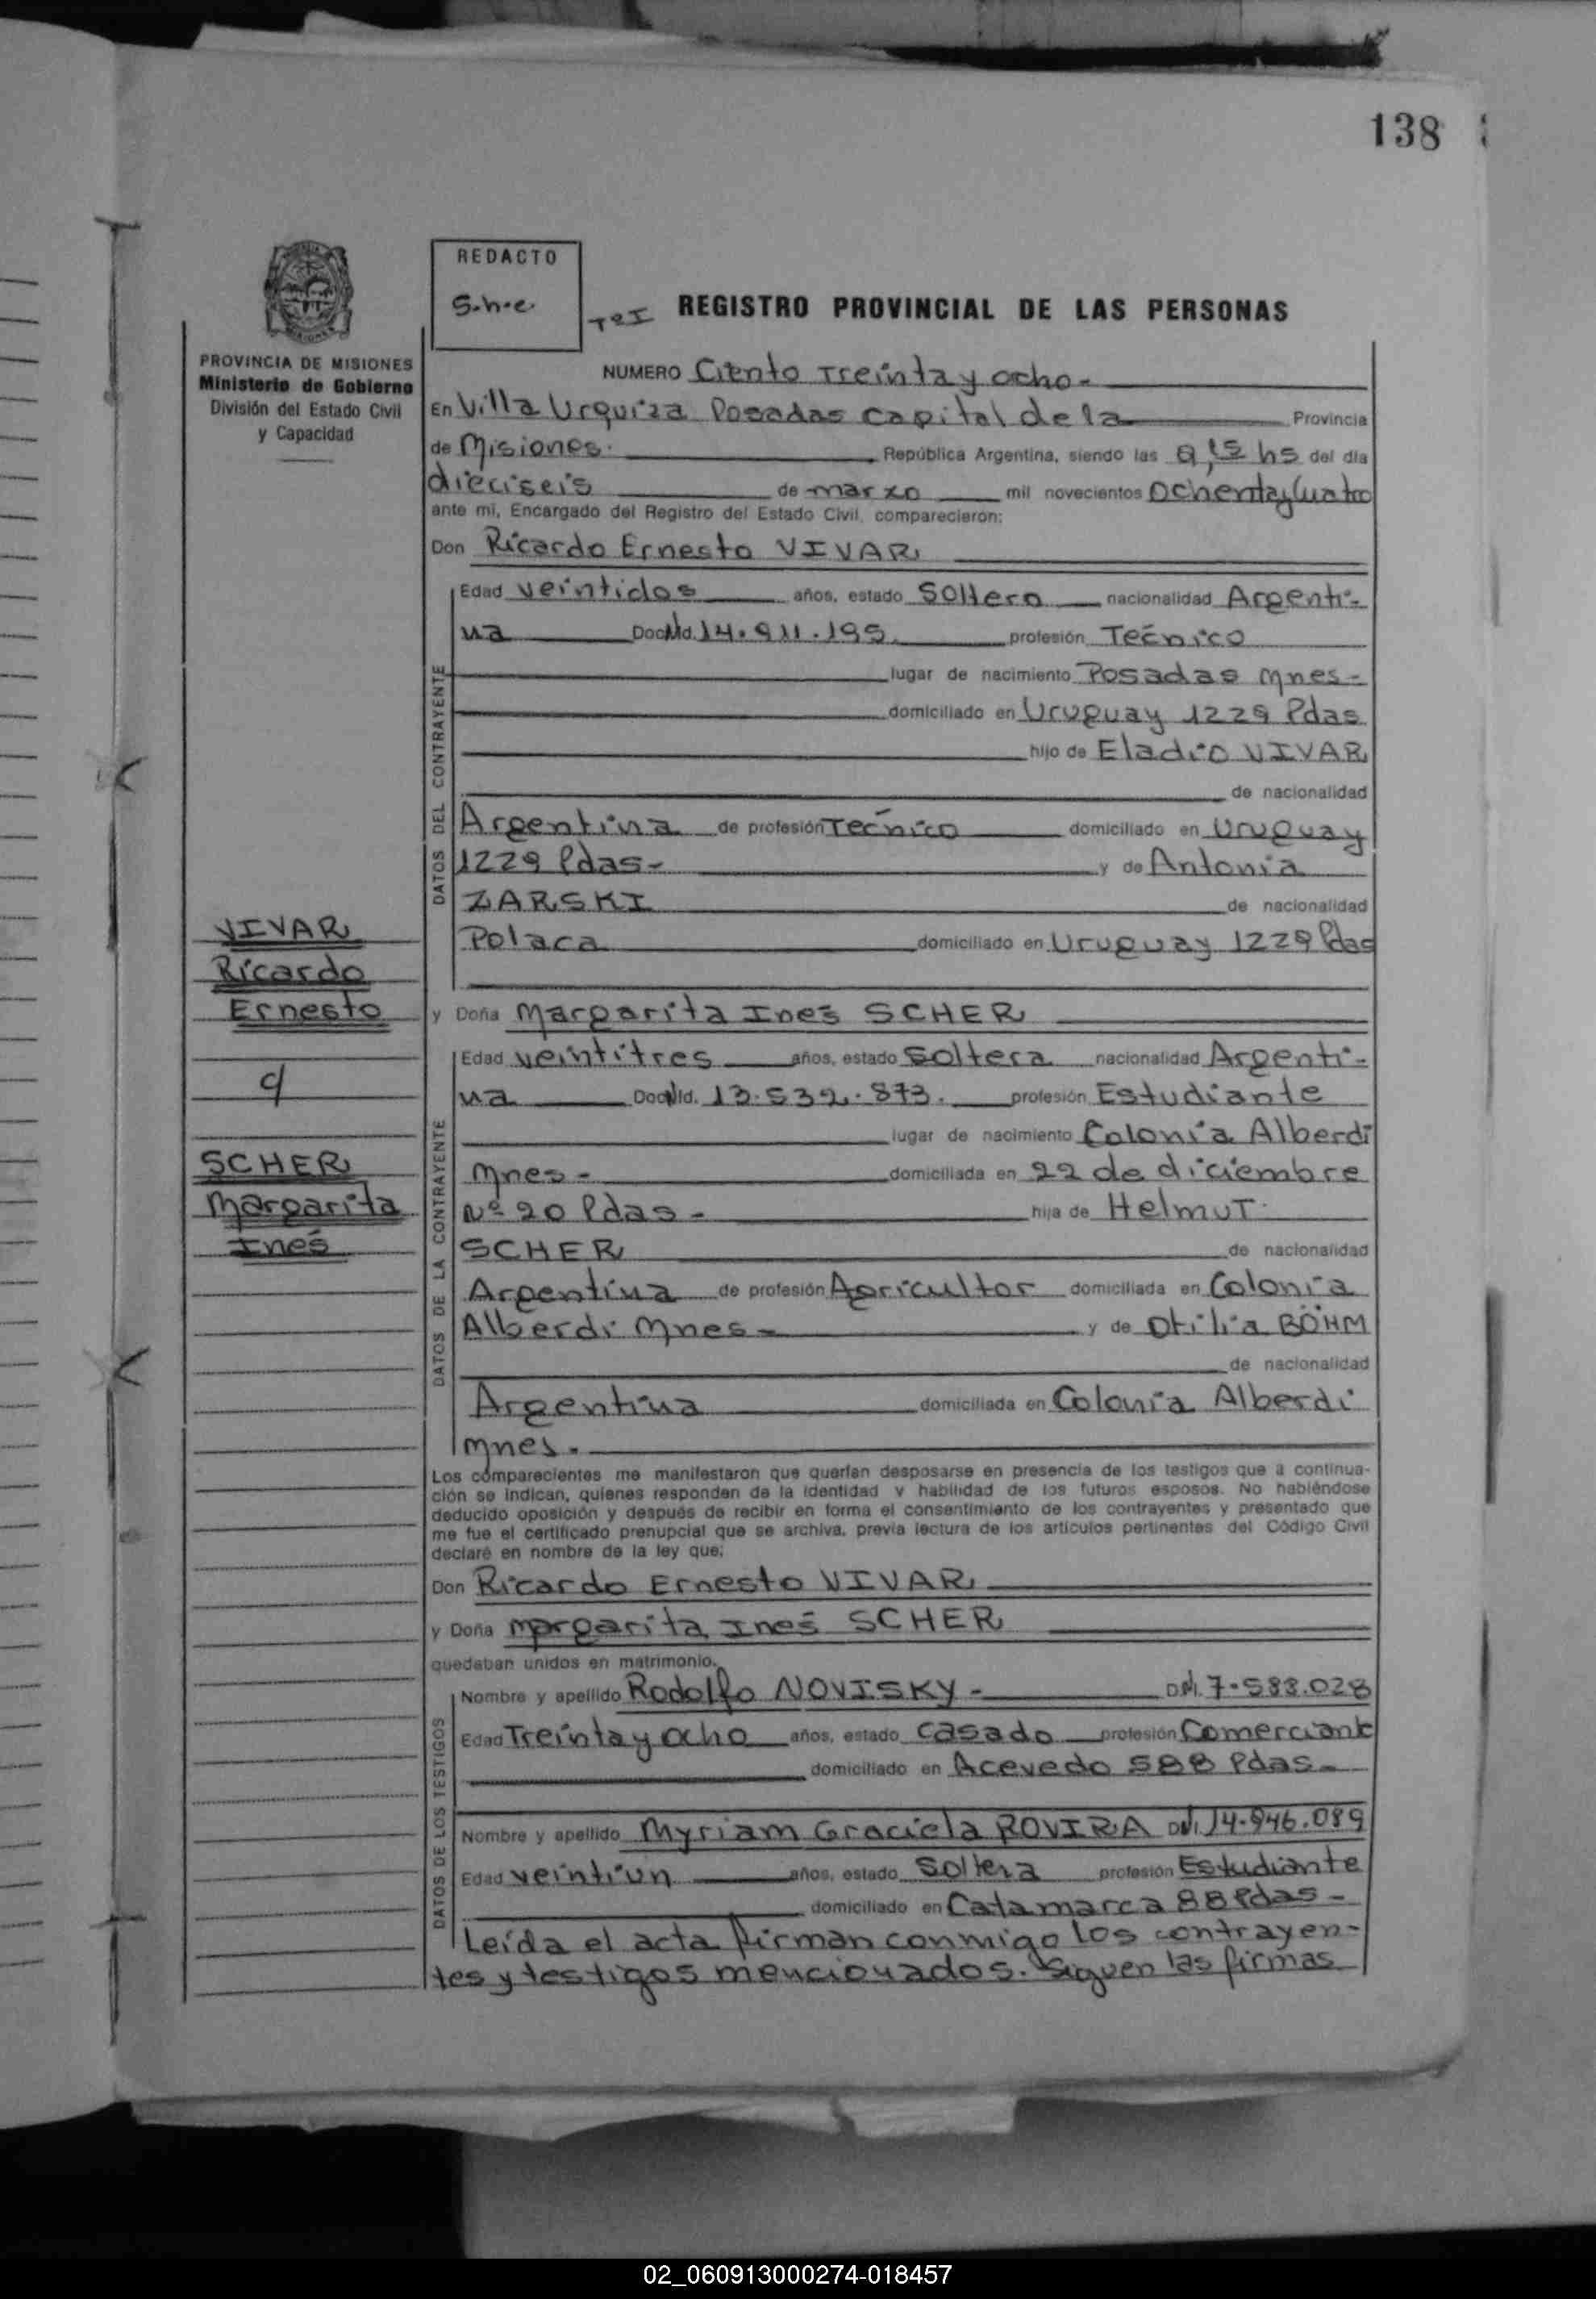 138
REDACTO
S.h.c.
REGISTRO PROVINCIAL DE LAS PERSONAS
PROVINCIA DE MISIONES
Ministerio de Gobierno
División del Estado Civil
y Capacidad
NUMERO Ciento Treinta y ocho-
En Villa Urquiza Posadas Capital de la Provincia
de Misiones. República Argentina, siendo las 9,15 hs del día
dieciseis de marzo mil novecientos Ochenta y Cuatro
ante mi, Encargado del Registro del Estado Civil, comparecieron:
Don Ricardo Ernesto VIVAR
DATOS DEL CONTRAYENTE
Edad veintidos años, estado Soltero nacionalidad Argenti-
na Doc.Nd. 14.911.195. profesión Técnico
lugar de nacimiento Posadas Mnes-
domiciliado en Uruguay 1229 Pdas
hijo de Eladio VIVAR
de nacionalidad
Argentina de profesión Técnico domiciliado en Uruguay
1229 Pdas- y de Antonia
ZARSKI de nacionalidad
Polaca domiciliado en Uruguay 1229 Pdas
VIVAR
Ricardo
Ernesto
SCHER
Margarita
Inés
y Doña Margarita Inés SCHER
DATOS DE LA CONTRAYENTE
Edad veintitres años, estado Soltera nacionalidad Argenti-
na 13.532.873. profesión Estudiante
lugar de nacimiento Colonia Alberdi
Mnes- domiciliada en 22 de diciembre
Nº 20 Pdas- hija de Helmut
SCHER de nacionalidad
Argentina de profesión Agricultor domiciliada en Colonia
Alberdi Mnes- y de Otilia BÖHM
de nacionalidad
Argentina domiciliada en Colonia Alberdi
Mnes.
Los comparecientes me manifestaron que querían desposarse en presencia de los testigos que a continua-
ción se indican, quienes responden de la identidad y habilidad de los futuros esposos. No habiéndose
deducido oposición y después de recibir en forma el consentimiento de los contrayentes y presentado que
me fue el certificado prenupcial que se archiva, previa lectura de los artículos pertinentes del Código Civil
declaré en nombre de la ley que:
Don Ricardo Ernesto VIVAR
y Doña Margarita Inés SCHER
quedaban unidos en matrimonio.
DATOS DE LOS TESTIGOS
Nombre y apellido Rodolfo NOVISKY- DNI. 7.588.028
Edad Treinta y ocho años, estado Casado profesión Comerciante
domiciliado en Acevedo 588 Pdas-
Nombre y apellido Myriam Graciela ROVIRA DNI. 14.946.089
Edad veintiun años, estado Soltera profesión Estudiante
domiciliado en Catamarca 88 Pdas-
Leída el acta firman conmigo los contrayen-
tes y testigos mencionados. Siguen las firmas
02_060913000274-018457